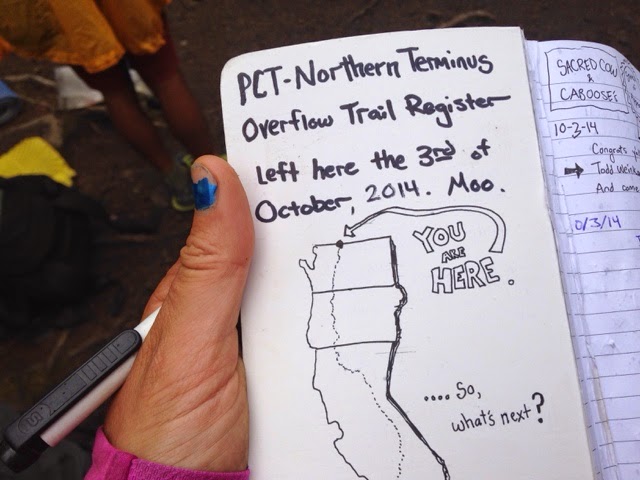 PCT-Northern Terminus
Overflow Trail Register
Left here the 3rd of
October, 2014. Moo.
YOU
ARE
HERE.
.... So,
what's next?
SACRED COW
&
CABOOSES
10-3-14
Congrats
Todd
And came
0/3/14